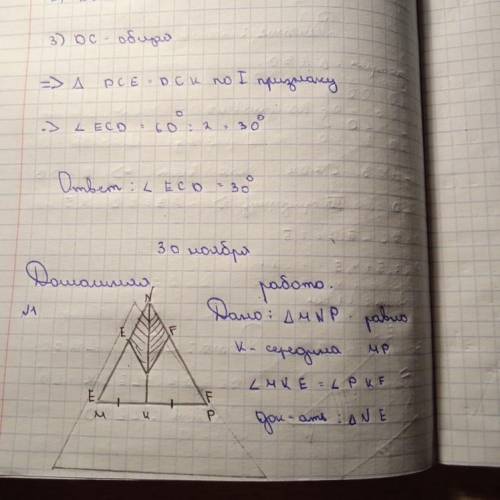 3) DC - общая
=> Δ DCE = DCK по I признаку
=> ∠ ECD = 60° : 2 = 30°
Ответ : ∠ ECD = 30°
30 ноября
Домашняя работа.
№1
Дано : Δ MNP - равно
K - середина MP
∠ MKE = ∠ PKF
Док-ать : Δ NE
N
E F
E F
M K P